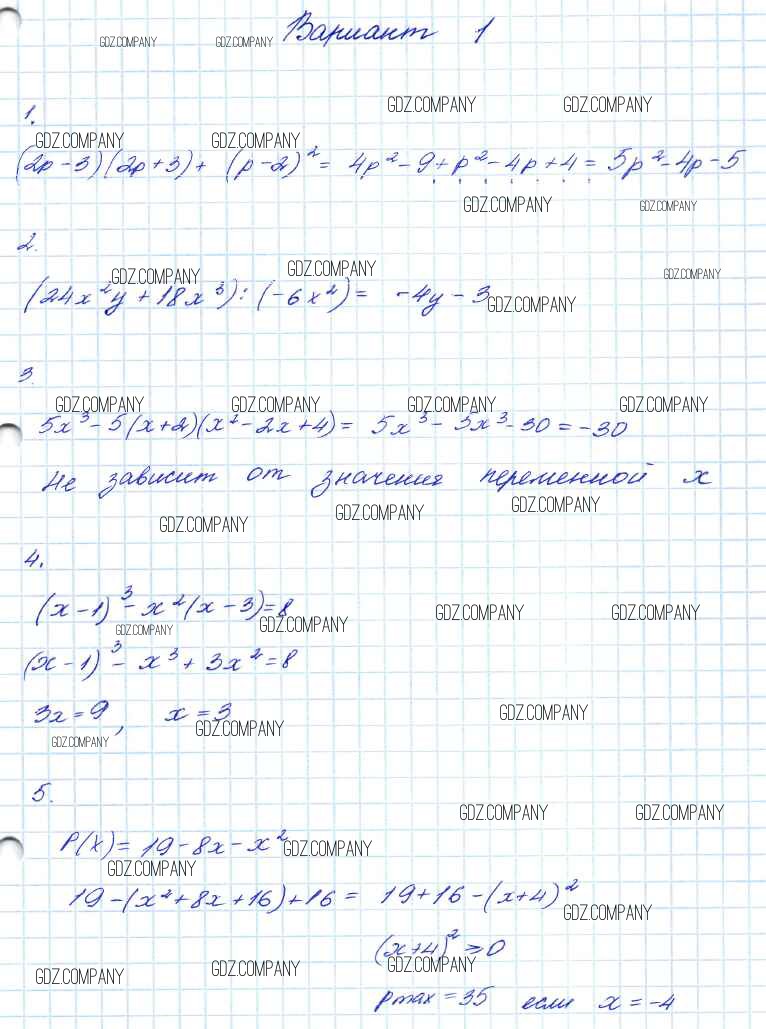 Вариант 1
GDZ.COMPANY GDZ.COMPANY
GDZ.COMPANY GDZ.COMPANY
1.
GDZ.COMPANY GDZ.COMPANY
(2p-3)(2p+3)+ (p-2)²= 4p²-9+p²-4p+4= 5p²-4p-5
GDZ.COMPANY GDZ.COMPANY
2.
GDZ.COMPANY GDZ.COMPANY GDZ.COMPANY
(24x²y+18x³):(-6x²)= -4y-3
GDZ.COMPANY
3.
GDZ.COMPANY GDZ.COMPANY GDZ.COMPANY GDZ.COMPANY
5x³-5(x+2)(x²-2x+4)= 5x³-5x³-30=-30
Не зависит от значения переменной x
GDZ.COMPANY GDZ.COMPANY GDZ.COMPANY
4.
(x-1)³-x²(x-3)=8
GDZ.COMPANY GDZ.COMPANY GDZ.COMPANY GDZ.COMPANY
(x-1)³-x³+3x²=8
3x=9, x=3
GDZ.COMPANY GDZ.COMPANY GDZ.COMPANY
5.
GDZ.COMPANY GDZ.COMPANY
P(x)=19-8x-x²
GDZ.COMPANY GDZ.COMPANY
19-(x²+8x+16)+16= 19+16-(x+4)²
GDZ.COMPANY
(x+4)²≥0
GDZ.COMPANY GDZ.COMPANY GDZ.COMPANY
pmax=35 если x=-4